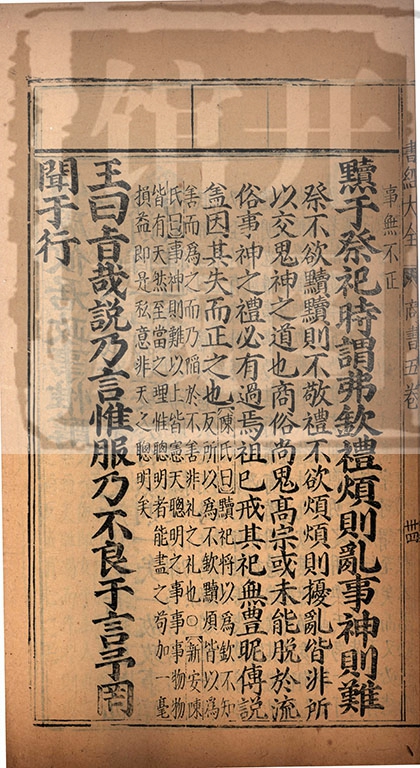 書經大全 商書五卷
事無不正
黷于祭祀時謂弗欽禮煩則亂事神則難
祭不欲黷黷則不敬禮不欲煩煩則擾亂皆非所
以交鬼神之道也商俗尚鬼高宗或未能脫於流
俗事神之禮必有過焉祖巳戒其祀無豐昵傅說
盖因其失而正之也
陳氏曰黷祀將以為欽不知
反所以為不欽黷煩皆以為
善而為之而乃陷於不善非礼之礼也○新安陳
氏曰事神則難以上皆憲天聰明之事事事物物
皆有天然至當之理惟聰明者能盡之苟加一毫
損益即是私意非天之聰明矣
王曰旨哉說乃言惟服乃不良于言予罔
聞于行